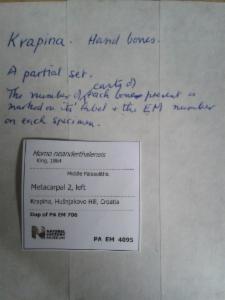 Krapina. Hand bones.
A partial set.
casts of
The number of each bone present is
marked on its label & the EM number
on each specimen.
Homo neanderthalensis
King, 1864
Middle Palaeolithic
Metacarpal 2, left
Krapina, Hušnjakovo Hill, Croatia
Dup of PA EM 706
NATURAL
HISTORY
MUSEUM
PA EM 4095